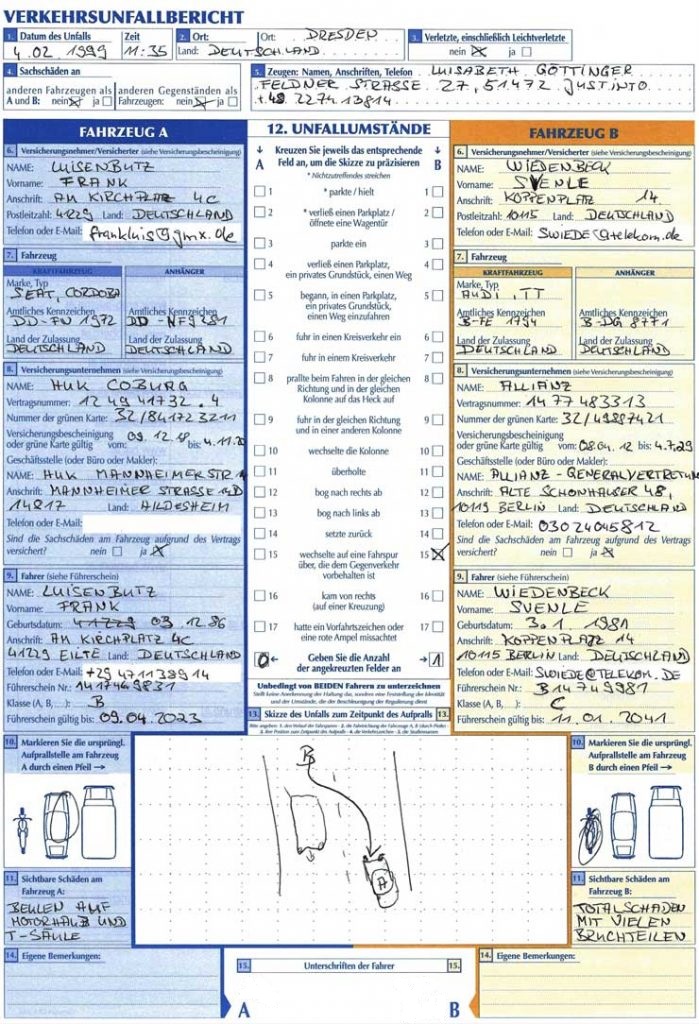 VERKEHRSUNFALLBERICHT
1. Datum des Unfalls Zeit
4.02.1999 11:35
2. Ort: Ort: DRESDEN
Land: DEUTSCHLAND
3. Verletzte, einschließlich Leichtverletzte
nein ja
4. Sachschäden an
anderen Fahrzeugen als A und B: nein ja
anderen Gegenständen als Fahrzeugen: nein ja
5. Zeugen: Namen, Anschriften, Telefon LUISABETH GÖTTINGER
FELDNER STRASSE 27, 51472 JUSTINTO
+49 2274 13814
FAHRZEUG A
6. Versicherungsnehmer/Versicherter (siehe Versicherungsbescheinigung)
NAME: LUISENBUTZ
Vorname: FRANK
Anschrift: AM KIRCHPLATZ 4C
Postleitzahl: 41229 Land: DEUTSCHLAND
Telefon oder E-Mail: frankluis@gmx.de
7. Fahrzeug
KRAFTFAHRZEUG ANHÄNGER
Marke, Typ
SEAT, CORDOBA
Amtliches Kennzeichen Amtliches Kennzeichen
DD-FN 1972 DD-NF9281
Land der Zulassung Land der Zulassung
DEUTSCHLAND DEUTSCHLAND
8. Versicherungsunternehmen (siehe Versicherungsbescheinigung)
NAME: HUK COBURG
Vertragsnummer: 12 49 41732 . 4
Nummer der grünen Karte: 32/841723211
Versicherungsbescheinigung
oder grüne Karte gültig vom: 09.12.18 bis: 4.11.
Geschäftsstelle (oder Büro oder Makler):
NAME: HUK MANNHEIMER STR
Anschrift: MANNHEIMER STRASSE
14817 Land: HILDESHEIM
Telefon oder E-Mail:
Sind die Sachschäden am Fahrzeug aufgrund des Vertrags
versichert? nein ja
9. Fahrer (siehe Führerschein)
NAME: LUISENBUTZ
Vorname: FRANK
Geburtsdatum: 03 12.86
Anschrift: AM KIRCHPLATZ 4C
41229 EILTE Land: DEUTSCHLAND
Telefon oder E-Mail: +29 471138914
Führerschein Nr.: 1417469831
Klasse (A, B, ): B
Führerschein gültig bis: 09.04.2023
12. UNFALLUMSTÄNDE
A Kreuzen Sie jeweils das entsprechende Feld an, um die Skizze zu präzisieren B
* Nichtzutreffendes streichen
1 * parkte / hielt 1
2 * verließ einen Parkplatz / öffnete eine Wagentür 2
3 parkte ein 3
4 verließ einen Parkplatz, ein privates Grundstück, einen Weg 4
5 begann, in einen Parkplatz, ein privates Grundstück, einen Weg einzufahren 5
6 fuhr in einen Kreisverkehr ein 6
7 fuhr in einem Kreisverkehr 7
8 prallte beim Fahren in der gleichen Richtung und in der gleichen Kolonne auf das Heck auf 8
9 fuhr in der gleichen Richtung und in einer anderen Kolonne 9
10 wechselte die Kolonne 10
11 überholte 11
12 bog nach rechts ab 12
13 bog nach links ab 13
14 setzte zurück 14
15 wechselte auf eine Fahrspur über, die dem Gegenverkehr vorbehalten ist 15
16 kam von rechts (auf einer Kreuzung) 16
17 hatte ein Vorfahrtszeichen oder eine rote Ampel missachtet 17
0 Geben Sie die Anzahl der angekreuzten Felder an 1
Unbedingt von BEIDEN Fahrern zu unterzeichnen
Stellt keine Anerkennung der Haftung dar, sondern eine Feststellung der Identität
und der Umstände, die der Beschleunigung der Regulierung dient
FAHRZEUG B
6. Versicherungsnehmer/Versicherter (siehe Versicherungsbescheinigung)
NAME: WIEDENBECK
Vorname: SVENLE
Anschrift: KOPPENPLATZ 14
Postleitzahl: 10115 Land: DEUTSCHLAND
Telefon oder E-Mail: SWIEDE@telekom.de
7. Fahrzeug
KRAFTFAHRZEUG ANHÄNGER
Marke, Typ
AUDI, TT
Amtliches Kennzeichen Amtliches Kennzeichen
B-FE 1794 B-DG 8771
Land der Zulassung Land der Zulassung
DEUTSCHLAND DEUTSCHLAND
8. Versicherungsunternehmen (siehe Versicherungsbescheinigung)
NAME: ALLIANZ
Vertragsnummer: 14 77 483313
Nummer der grünen Karte: 32/49887421
Versicherungsbescheinigung
oder grüne Karte gültig vom: 08.04.12 bis: 4.7.29
Geschäftsstelle (oder Büro oder Makler):
NAME: ALLIANZ-GENERALVERTRETUN
Anschrift: ALTE SCHÖNHAUSER 48,
10119 BERLIN Land: DEUTSCHLAND
Telefon oder E-Mail: 03024045812
Sind die Sachschäden am Fahrzeug aufgrund des Vertrags
versichert? nein ja
9. Fahrer (siehe Führerschein)
NAME: WIEDENBECK
Vorname: SVENLE
Geburtsdatum: 3.01.1981
Anschrift: KOPPENPLATZ 14
10115 BERLIN Land: DEUTSCHLAND
Telefon oder E-Mail: SWIEDE@TELEKOM.DE
Führerschein Nr.: B14749981
Klasse (A, B, ): C
Führerschein gültig bis: 11.01.2041
13. Skizze des Unfalls zum Zeitpunkt des Aufpralls 13.
10. Markieren Sie die ursprüngl. Aufprallstelle am Fahrzeug A durch einen Pfeil
B
A
10. Markieren Sie die ursprüngl. Aufprallstelle am Fahrzeug B durch einen Pfeil
11. Sichtbare Schäden am Fahrzeug A:
BEULEN AUF
MOTORHAUB UND
T-SÄULE
11. Sichtbare Schäden am Fahrzeug B:
TOTALSCHADEN
MIT VIELEN
BRUCHTEILEN
14. Eigene Bemerkungen:
15. Unterschriften der Fahrer 15.
A B
14. Eigene Bemerkungen: